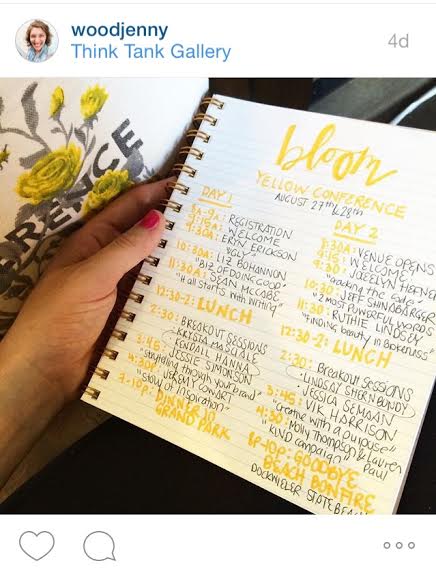 woodjenny
Think Tank Gallery
4d
RENCE
bloom
YELLOW CONFERENCE
AUGUST 27th & 28th
DAY 1
8A-9A: REGISTRATION
9:15A: WELCOME
9:30A: ERYN ERICKSON
"UGLY"
10:30A: LIZ BOHANNON
"BIZ OF DOING GOOD"
11:30A: SEAN MCCABE
"It all starts with writing"
12:30-2: LUNCH
2:30: BREAKOUT SESSIONS
KRYSTA MASCIALE
KENDALL HANNA
JESSIE SIMONSON
3:45:
"Storytelling through your brand"
4:30P: JEREMY COWART
"Story of Inspiration"
7-10P: DINNER IN
GRAND PARK
DAY 2
8:30A: VENUE OPENS
9:15: WELCOME!
9:30: JOCELYN HEFNER
"Cracking the Code"
10:30: JEFF SHINABARGER
"2 most powerful words"
11:30: RUTHIE LINDSEY
"Finding beauty in Brokenness"
12:30-2: LUNCH
2:30: Breakout Sessions
• LINDSAY SHERNBONDY
• JESSICA SEMAAN
3:45: VIK HARRISON
"Creative with a purpose"
4:30: Molly Thompson & Lauren
"KIND campaign" Paul
8P-10P: GOODBYE
BEACH BONFIRE
DOCKWEILER STATE BEACH